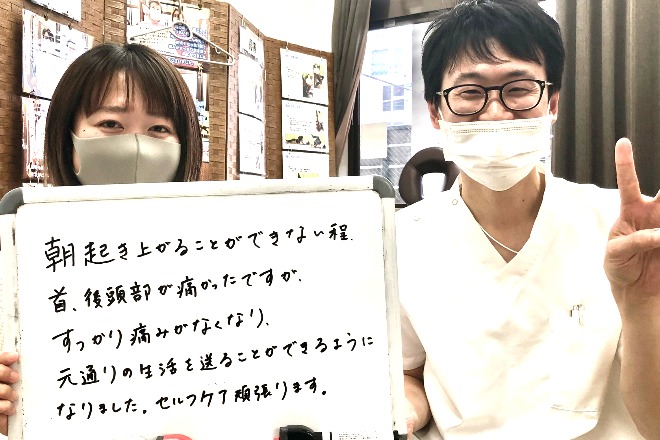 朝起き上がることができない程、
首、後頭部が痛かったですが、
すっかり痛みがなくなり、
元通りの生活を送ることができるように
なりました。セルフケア頑張ります。